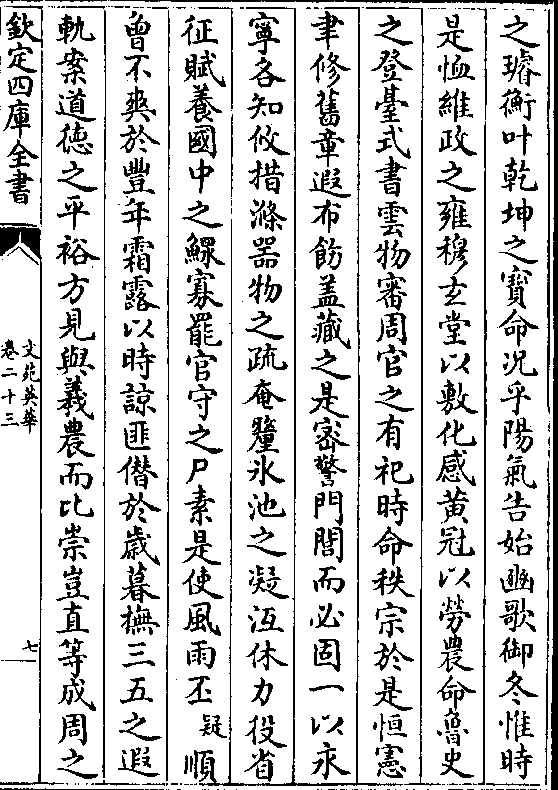 之璿衡叶乾坤之寳命况乎陽氣告始豳歌御冬惟時
是恤維政之雍穆玄堂以敷化感黄冠以勞農命魯史
之登臺式書雲物審周官之有祀時命秩宗於是恒憲
聿修舊章遐布飭盖藏之是宻警門閭而必固一以永
寧各知攸措滌器物之疏奄釐氷池之凝冱休力役省
征賦養國中之鰥寡罷官守之尸素是使風雨丕疑順
曾不爽於豐年霜露以時諒匪僭於歳暮撫三五之遐
軌案道徳之平裕方見與羲農而比崇豈直等成周之
欽定四庫全書
文苑英華
卷二十三
七